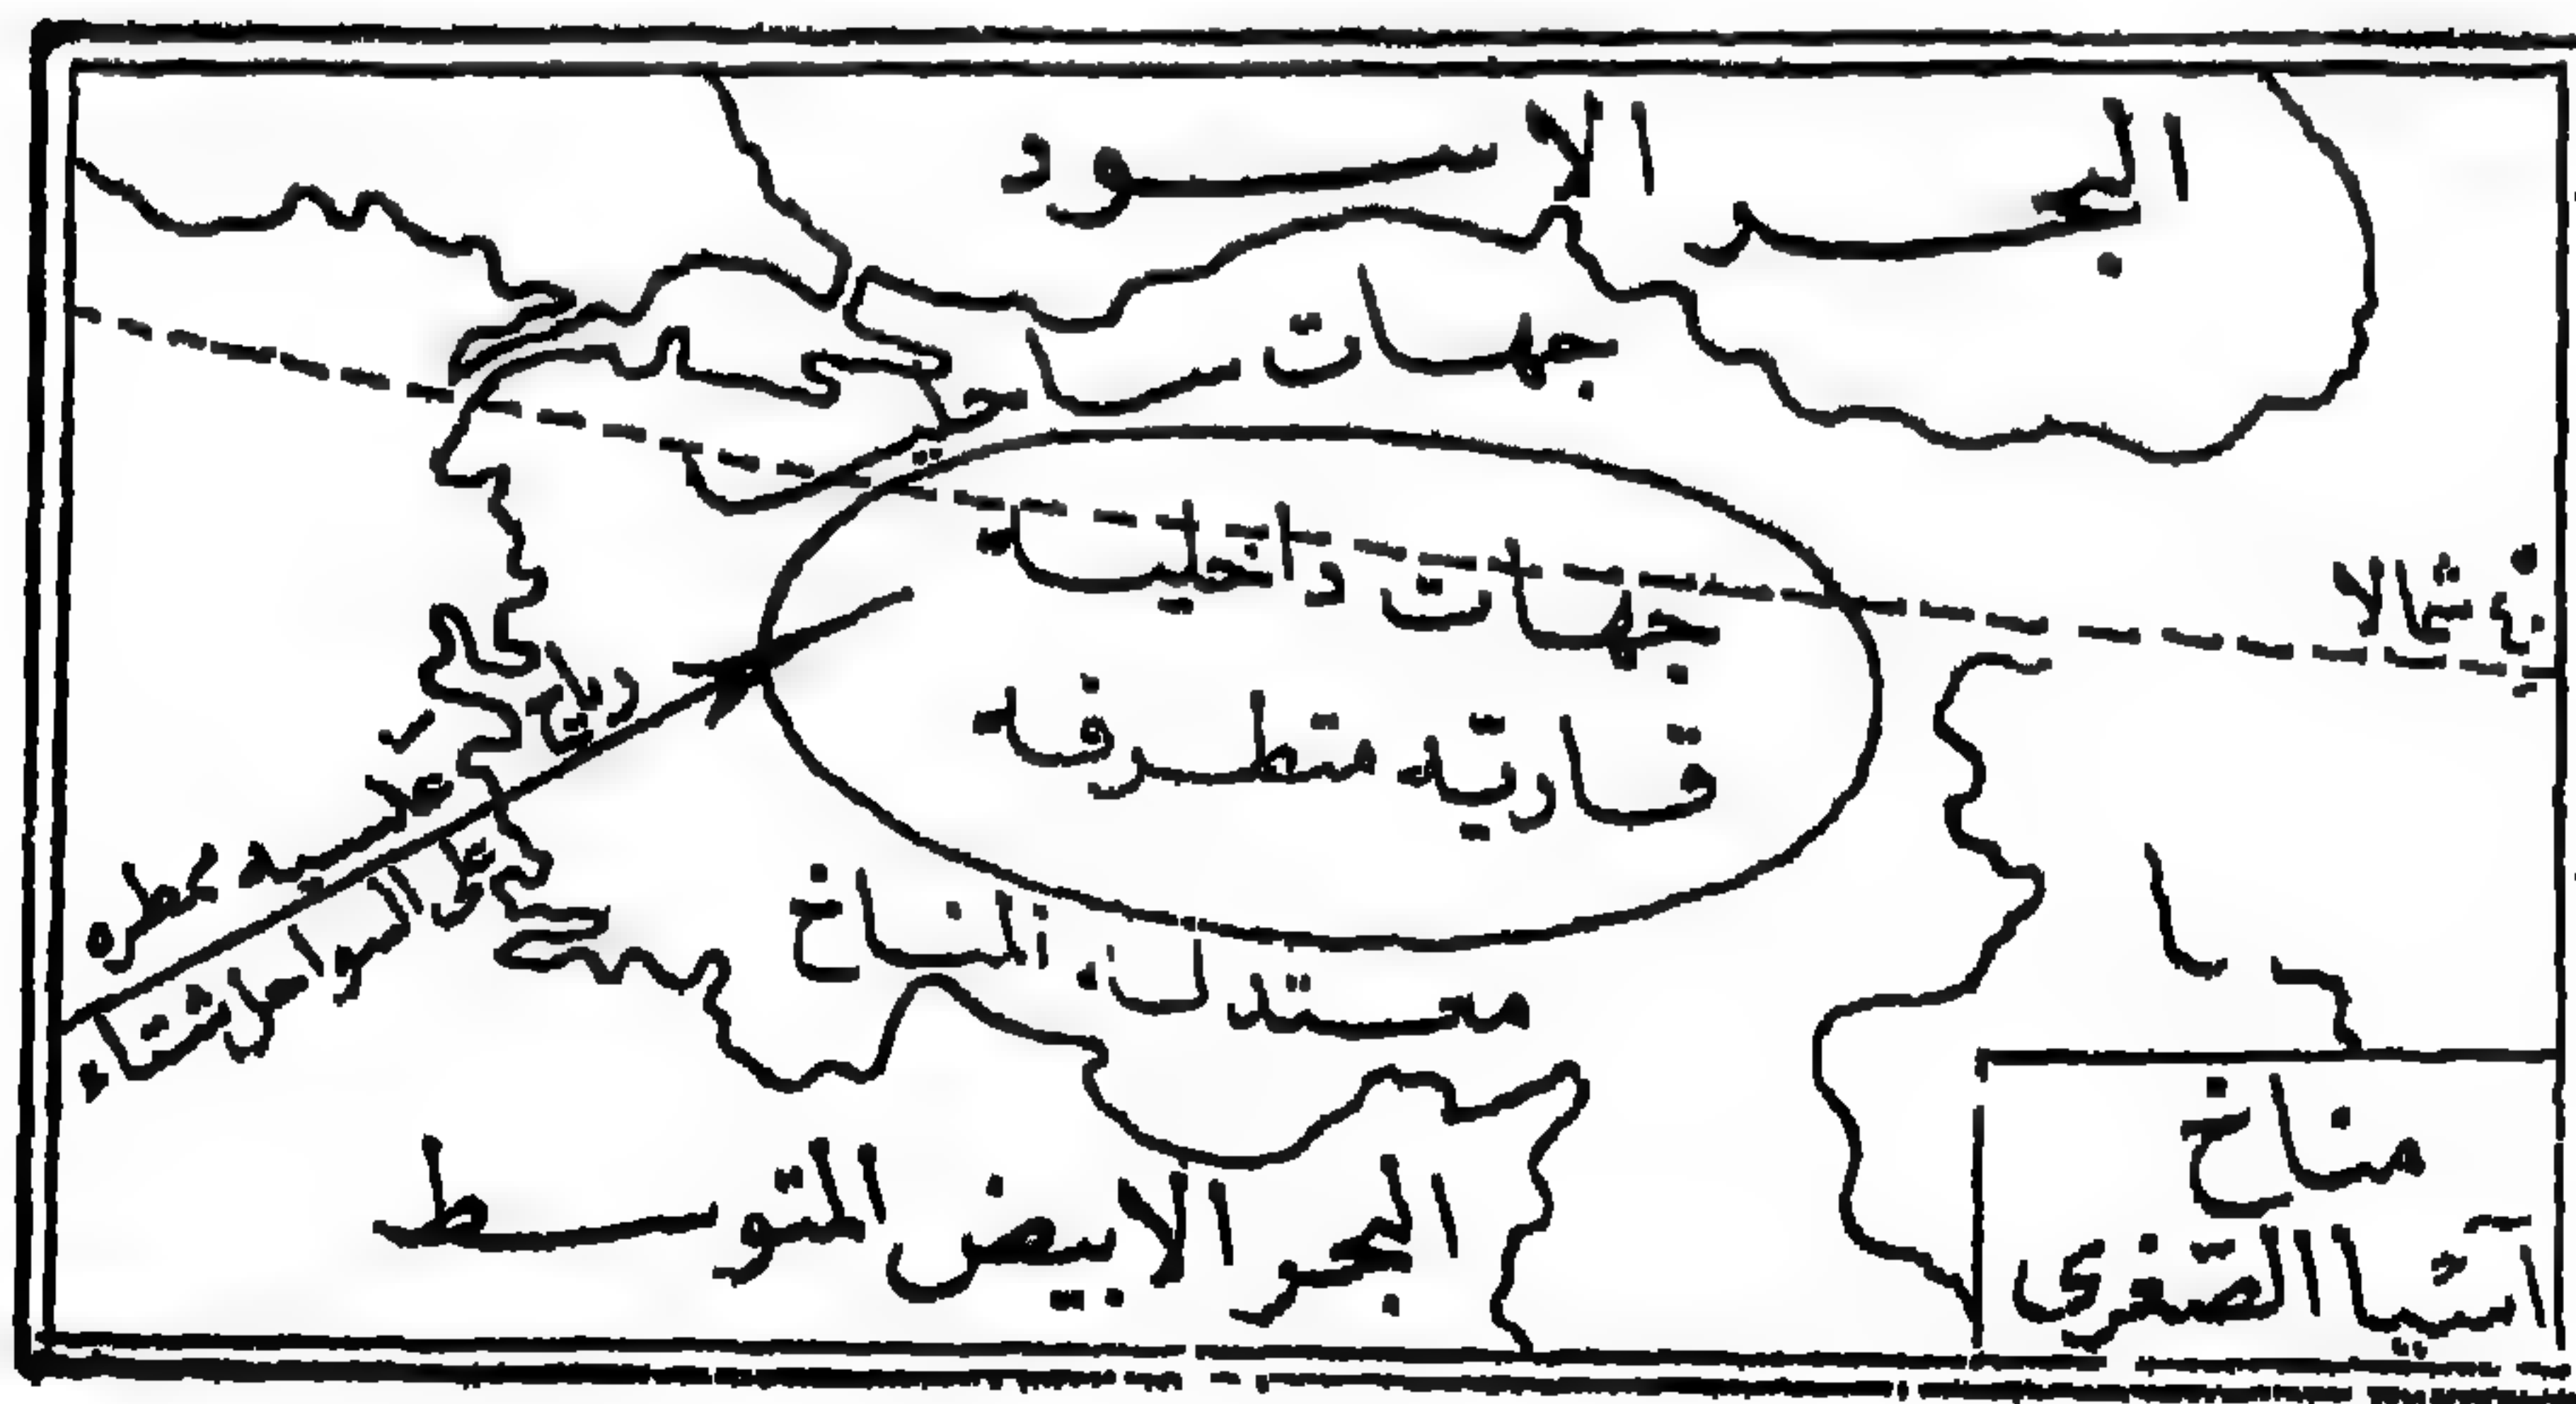 البحر الاسود
جهات ساحلية
٤٠ شمالا
جهات داخلية
قارية متطرفه
رياح
عكسيه ممطره
على سواحل شتاء
معتدلة المناخ
البحر الابيض المتوسط
مناخ
آسيا الصغرى